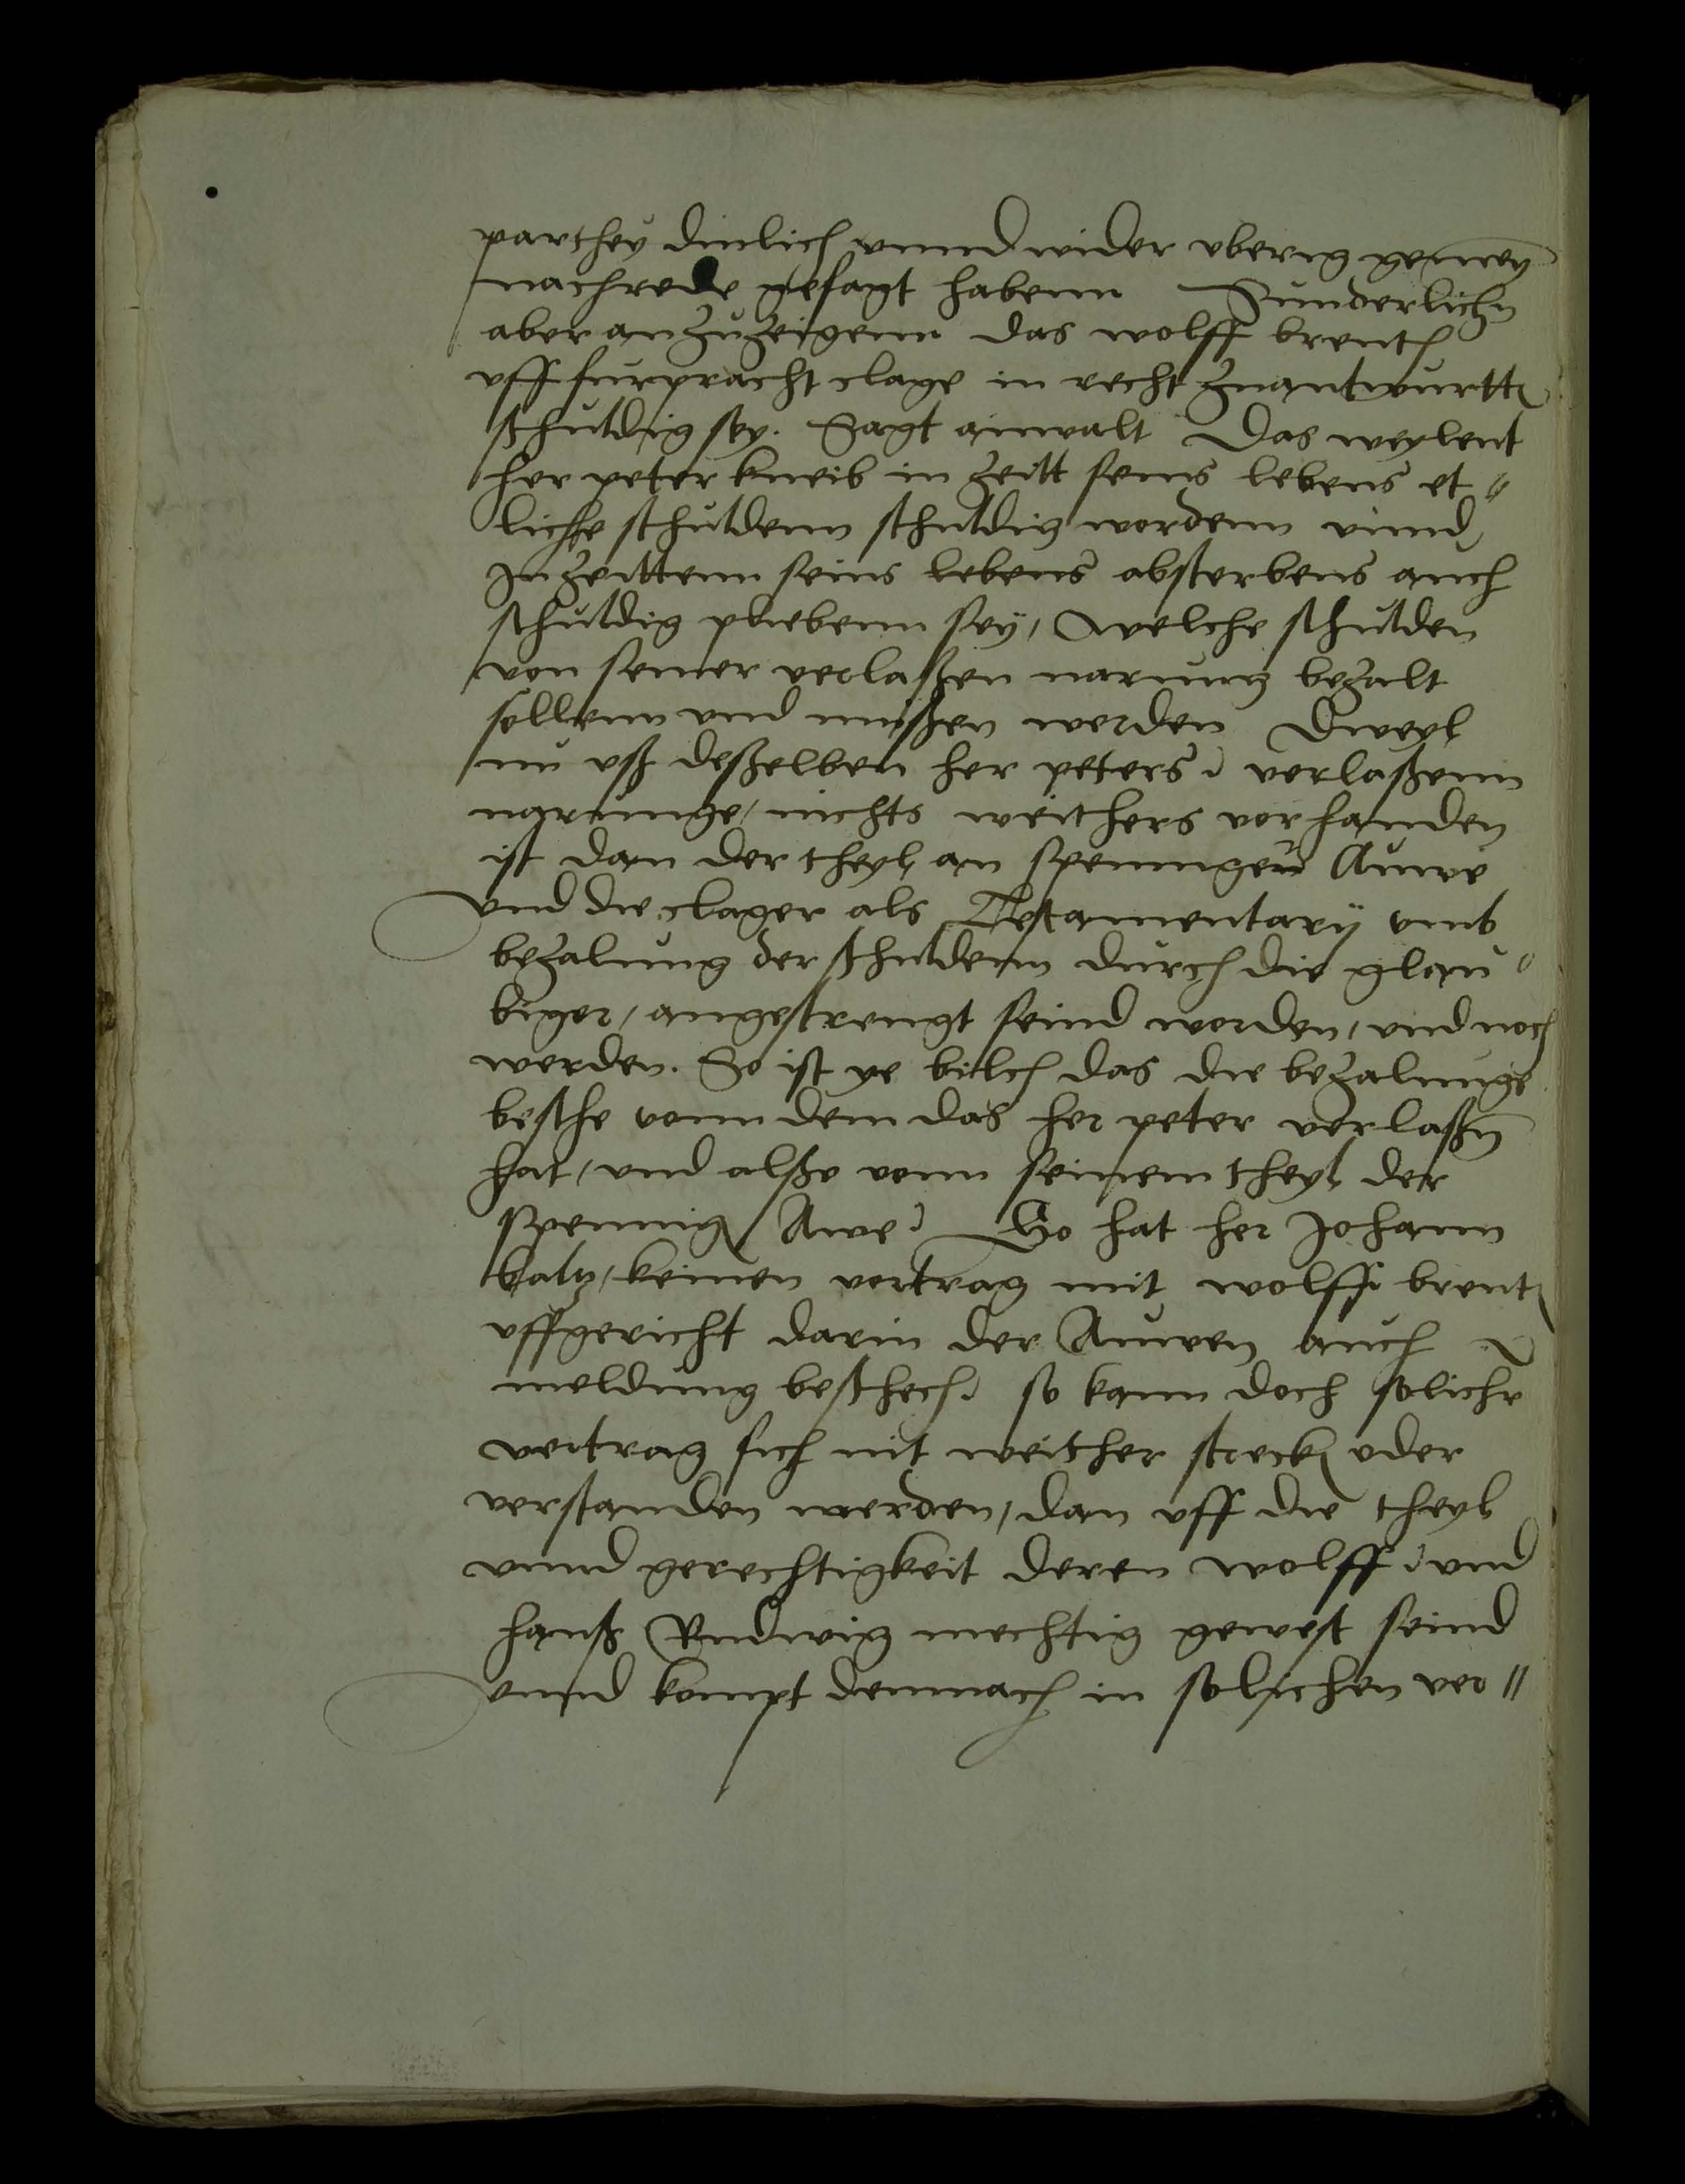 parthey dinlich vnnd wider vberig gemey
nachrede gesagt habenn Sunderlichn
aber anzuzeigenn das wolff brentz
vff furpracht clage in recht zuantwurtt
schuldig sey. Sagt anwalt Das weylent
her peter kneib in Zeitt seins lebens et
liche schuldenn schuldig wordenn vnnd
In zeittenn seins lebens absterbens auch
schuldig pliebenn sey, Welche schulden
von seiner verlaßen narung bezalt
sollenn vnd mußen werden Dweyl
nu vß deßelben her peters verlaßenn
narunge, nichts weithers vorhanden
ist dan der theyl an spennigen Auwe
vnd die clager als Testamentary vmb
bezalung der schuldenn durch die glau
biger, angestrengt seind worden, vnd noch
werden. So ist ye bilch das die bezalunge
beschee vonn dem das her peter verlaßn
hat, vnd alßo vonn seinem theyl der
spennig Awe So hat her Johann
keinen vertrag mit wolff brentz
vffgericht darin der Auwen auch
meldung beschech so kann doch soliche
vertrag sich nit weither streck oder
verstanden werden, dan vff die theyl
vnnd gerechtigkeit deren wolff vnd
hanß Ludwig mechtig gewest seind
vnnd kompt demnach in solichen ver